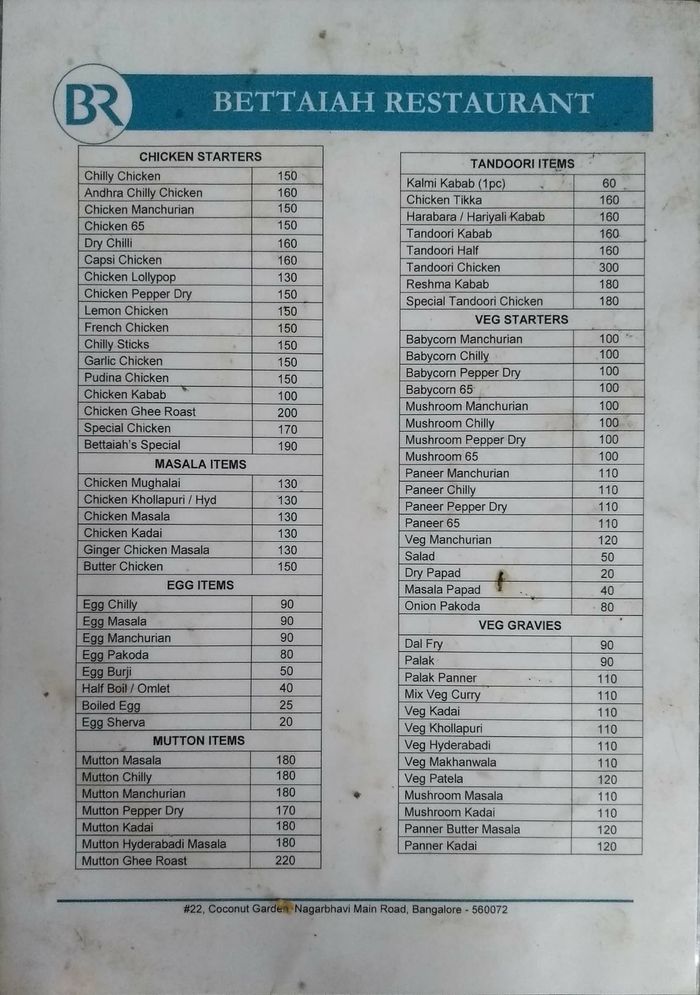 BR
BETTAIAH RESTAURANT
CHICKEN STARTERS
Chilly Chicken 150
Andhra Chilly Chicken 160
Chicken Manchurian 150
Chicken 65 150
Dry Chilli 160
Capsi Chicken 160
Chicken Lollypop 130
Chicken Pepper Dry 150
Lemon Chicken 150
French Chicken 150
Chilly Sticks 150
Garlic Chicken 150
Pudina Chicken 150
Chicken Kabab 100
Chicken Ghee Roast 200
Special Chicken 170
Bettaiah's Special 190
MASALA ITEMS
Chicken Mughalai 130
Chicken Khollapuri / Hyd 130
Chicken Masala 130
Chicken Kadai 130
Ginger Chicken Masala 130
Butter Chicken 150
EGG ITEMS
Egg Chilly 90
Egg Masala 90
Egg Manchurian 90
Egg Pakoda 80
Egg Burji 50
Half Boil / Omlet 40
Boiled Egg 25
Egg Sherva 20
MUTTON ITEMS
Mutton Masala 180
Mutton Chilly 180
Mutton Manchurian 180
Mutton Pepper Dry 170
Mutton Kadai 180
Mutton Hyderabadi Masala 180
Mutton Ghee Roast 220
TANDOORI ITEMS
Kalmi Kabab (1pc) 60
Chicken Tikka 160
Harabara / Hariyali Kabab 160
Tandoori Kabab 160
Tandoori Half 160
Tandoori Chicken 300
Reshma Kabab 180
Special Tandoori Chicken 180
VEG STARTERS
Babycorn Manchurian 100
Babycorn Chilly 100
Babycorn Pepper Dry 100
Babycorn 65 100
Mushroom Manchurian 100
Mushroom Chilly 100
Mushroom Pepper Dry 100
Mushroom 65 100
Paneer Manchurian 110
Paneer Chilly 110
Paneer Pepper Dry 110
Paneer 65 110
Veg Manchurian 120
Salad 50
Dry Papad 20
Masala Papad 40
Onion Pakoda 80
VEG GRAVIES
Dal Fry 90
Palak 90
Palak Panner 110
Mix Veg Curry 110
Veg Kadai 110
Veg Khollapuri 110
Veg Hyderabadi 110
Veg Makhanwala 110
Veg Patela 120
Mushroom Masala 110
Mushroom Kadai 110
Panner Butter Masala 120
Panner Kadai 120
#22, Coconut Garden, Nagarbhavi Main Road, Bangalore - 560072